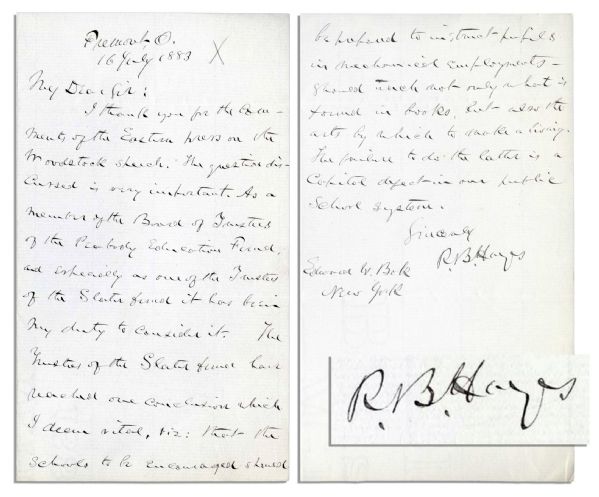 Fremont, O.
16 July 1883
My Dear Sir:
I thank you for the com-
ments of the Eastern press on the
Woodstock speech. The question dis-
cussed is very important. As a
member of the Board of Trustees
of the Peabody Education Fund,
and especially as one of the Trustees
of the Slater fund it has been
my duty to consider it. The
Trustees of the Slater fund have
reached one conclusion which
I deem vital, viz: that the
schools to be encouraged should
be prepared to instruct pupils
in mechanical employments -
should teach not only what is
found in books, but also the
arts by which to make a living.
The failure to do the latter is a
Capital defect in our public
School system.
Sincerely
R.B. Hayes
Edward W. Bok
New York
R.B. Hayes